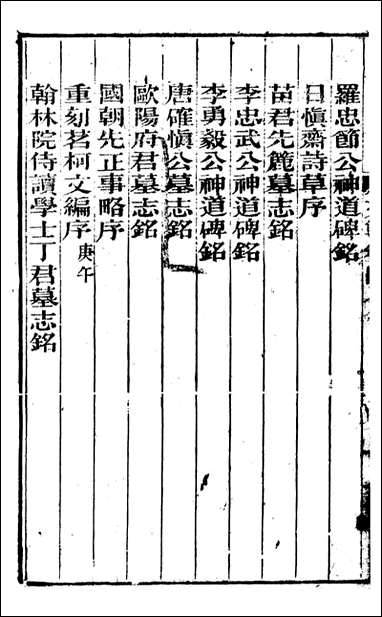 羅忠節公神道碑銘
日愼齋詩草序
苗君先簏墓志銘
李忠武公神道碑銘
李勇毅公神道碑銘
唐確愼公墓志銘
歐陽府君墓志銘
國朝先正事略序
重刻茗柯文編序庚午
翰林院侍讀學士丁君墓志銘